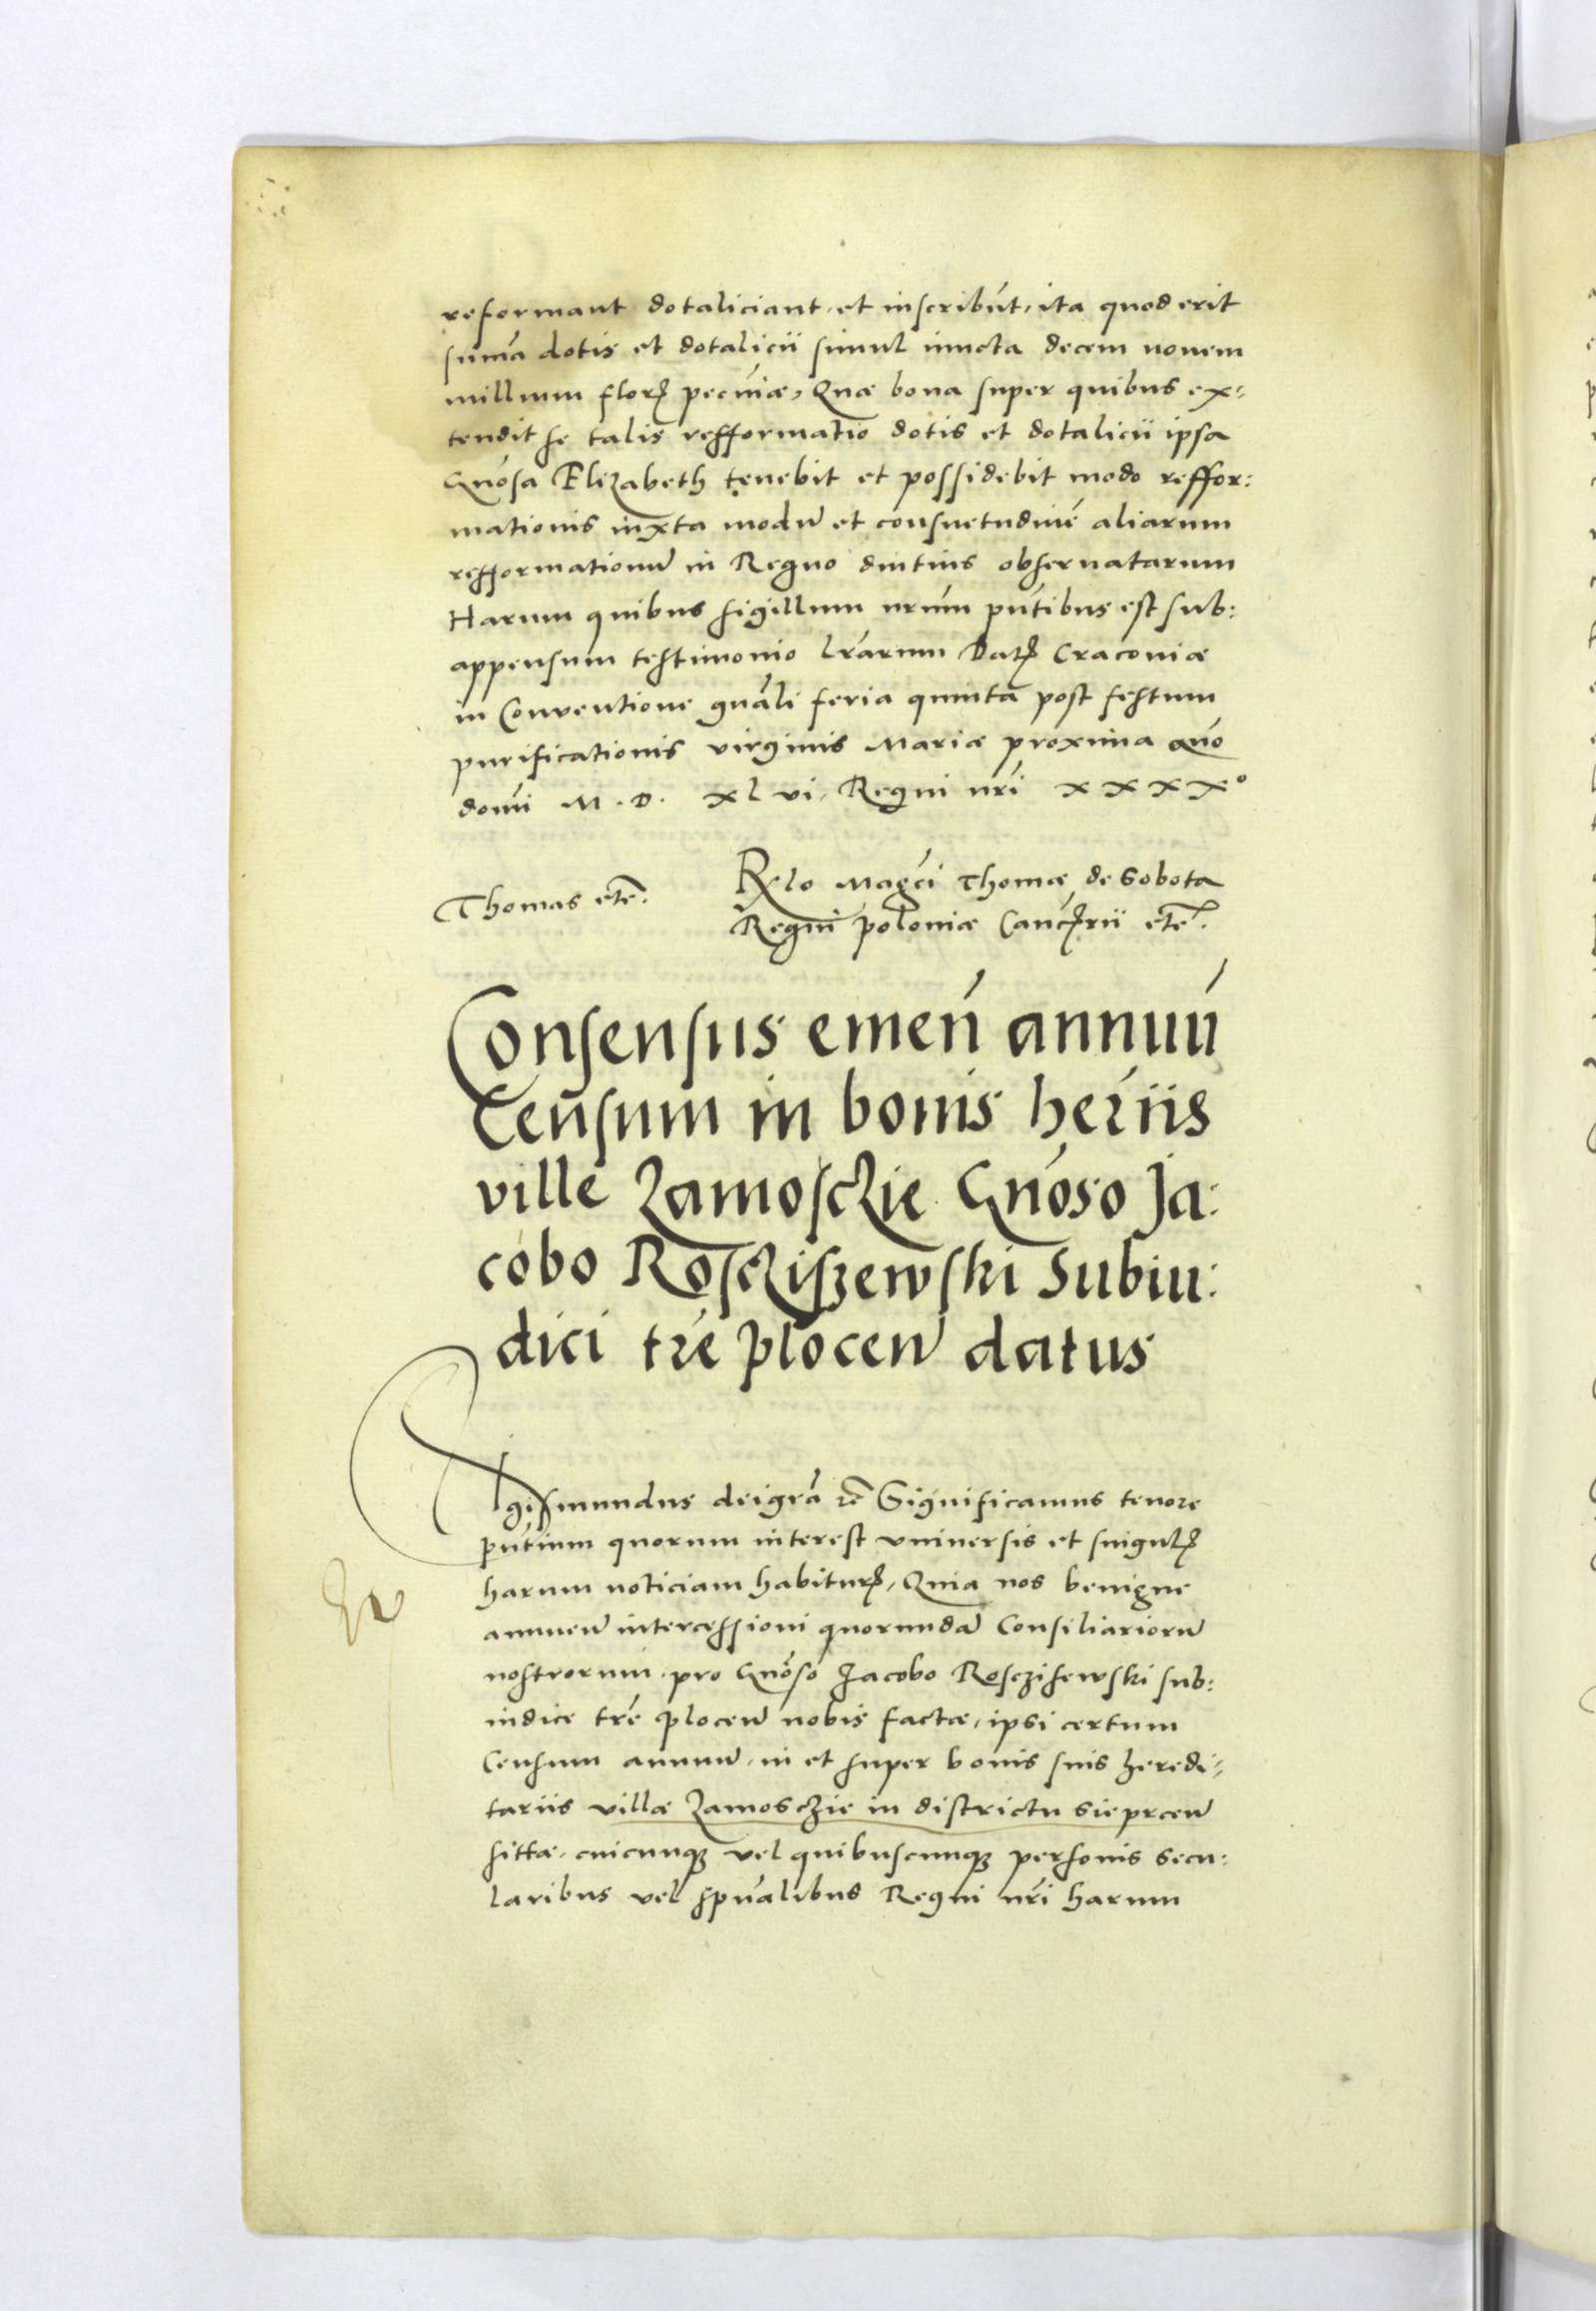 reformant dotaliciant, et inscribūt, ita quod erit
sum̄a dotis et dotalicii simul iuncta decem novem
millium florꝝ pecuniæ, Quæ bona super quibus ex-
tendit se talis refformatio dotis et dotalicii ipsa
Gn̄osa Elizabeth tenebit et possidebit modo reffor:
mationis iuxta modū et consuetudinē aliarum
refformationū in Regno diutius observatarum
Harum quibus sigillum nr̄um pn̄tibus est sub:
appensum testimonio lr̄arum Datꝝ Cracoviæ
in Conventione gn̄ali feria quinta post festum
purificationis virginis Mariæ proxima an̄o
domi M. D. xl vi, Regni nr̄i x x x x°
Thomas etc̄.
Relo Magc̄i Thomæ de Sobota
Regni poloniæ Canc̄ꝝrii etc̄.
Consensus emen̄ annuū
Censum in bonis her̄iis
ville Zamosczie Gn̄oso Ja:
cobo Rosczisżewski Subiu:
dici tr̄e plocen̄ datus
Sigismundus dei gr̄a rē Significamus tenore
pn̄tium quorum interest universis et singulꝝ
harum noticiam habiturꝝ, Quia nos benigne
annuen̄ intercessioni quorundā Consiliariorū
nostrorum, pro Gn̄oso Jacobo Rosczisewski sub:
iudice tr̄e plocen̄ nobis factæ, ipsi certum
Censum annuū, in et super bonis suis heredi-
tariis villæ Zamosczie in districtu sieprcen̄
sittæ, cuicunqꝫ vel quibuscunqꝫ personis secu:
laribus vel spūalibus Regni nr̄i harum